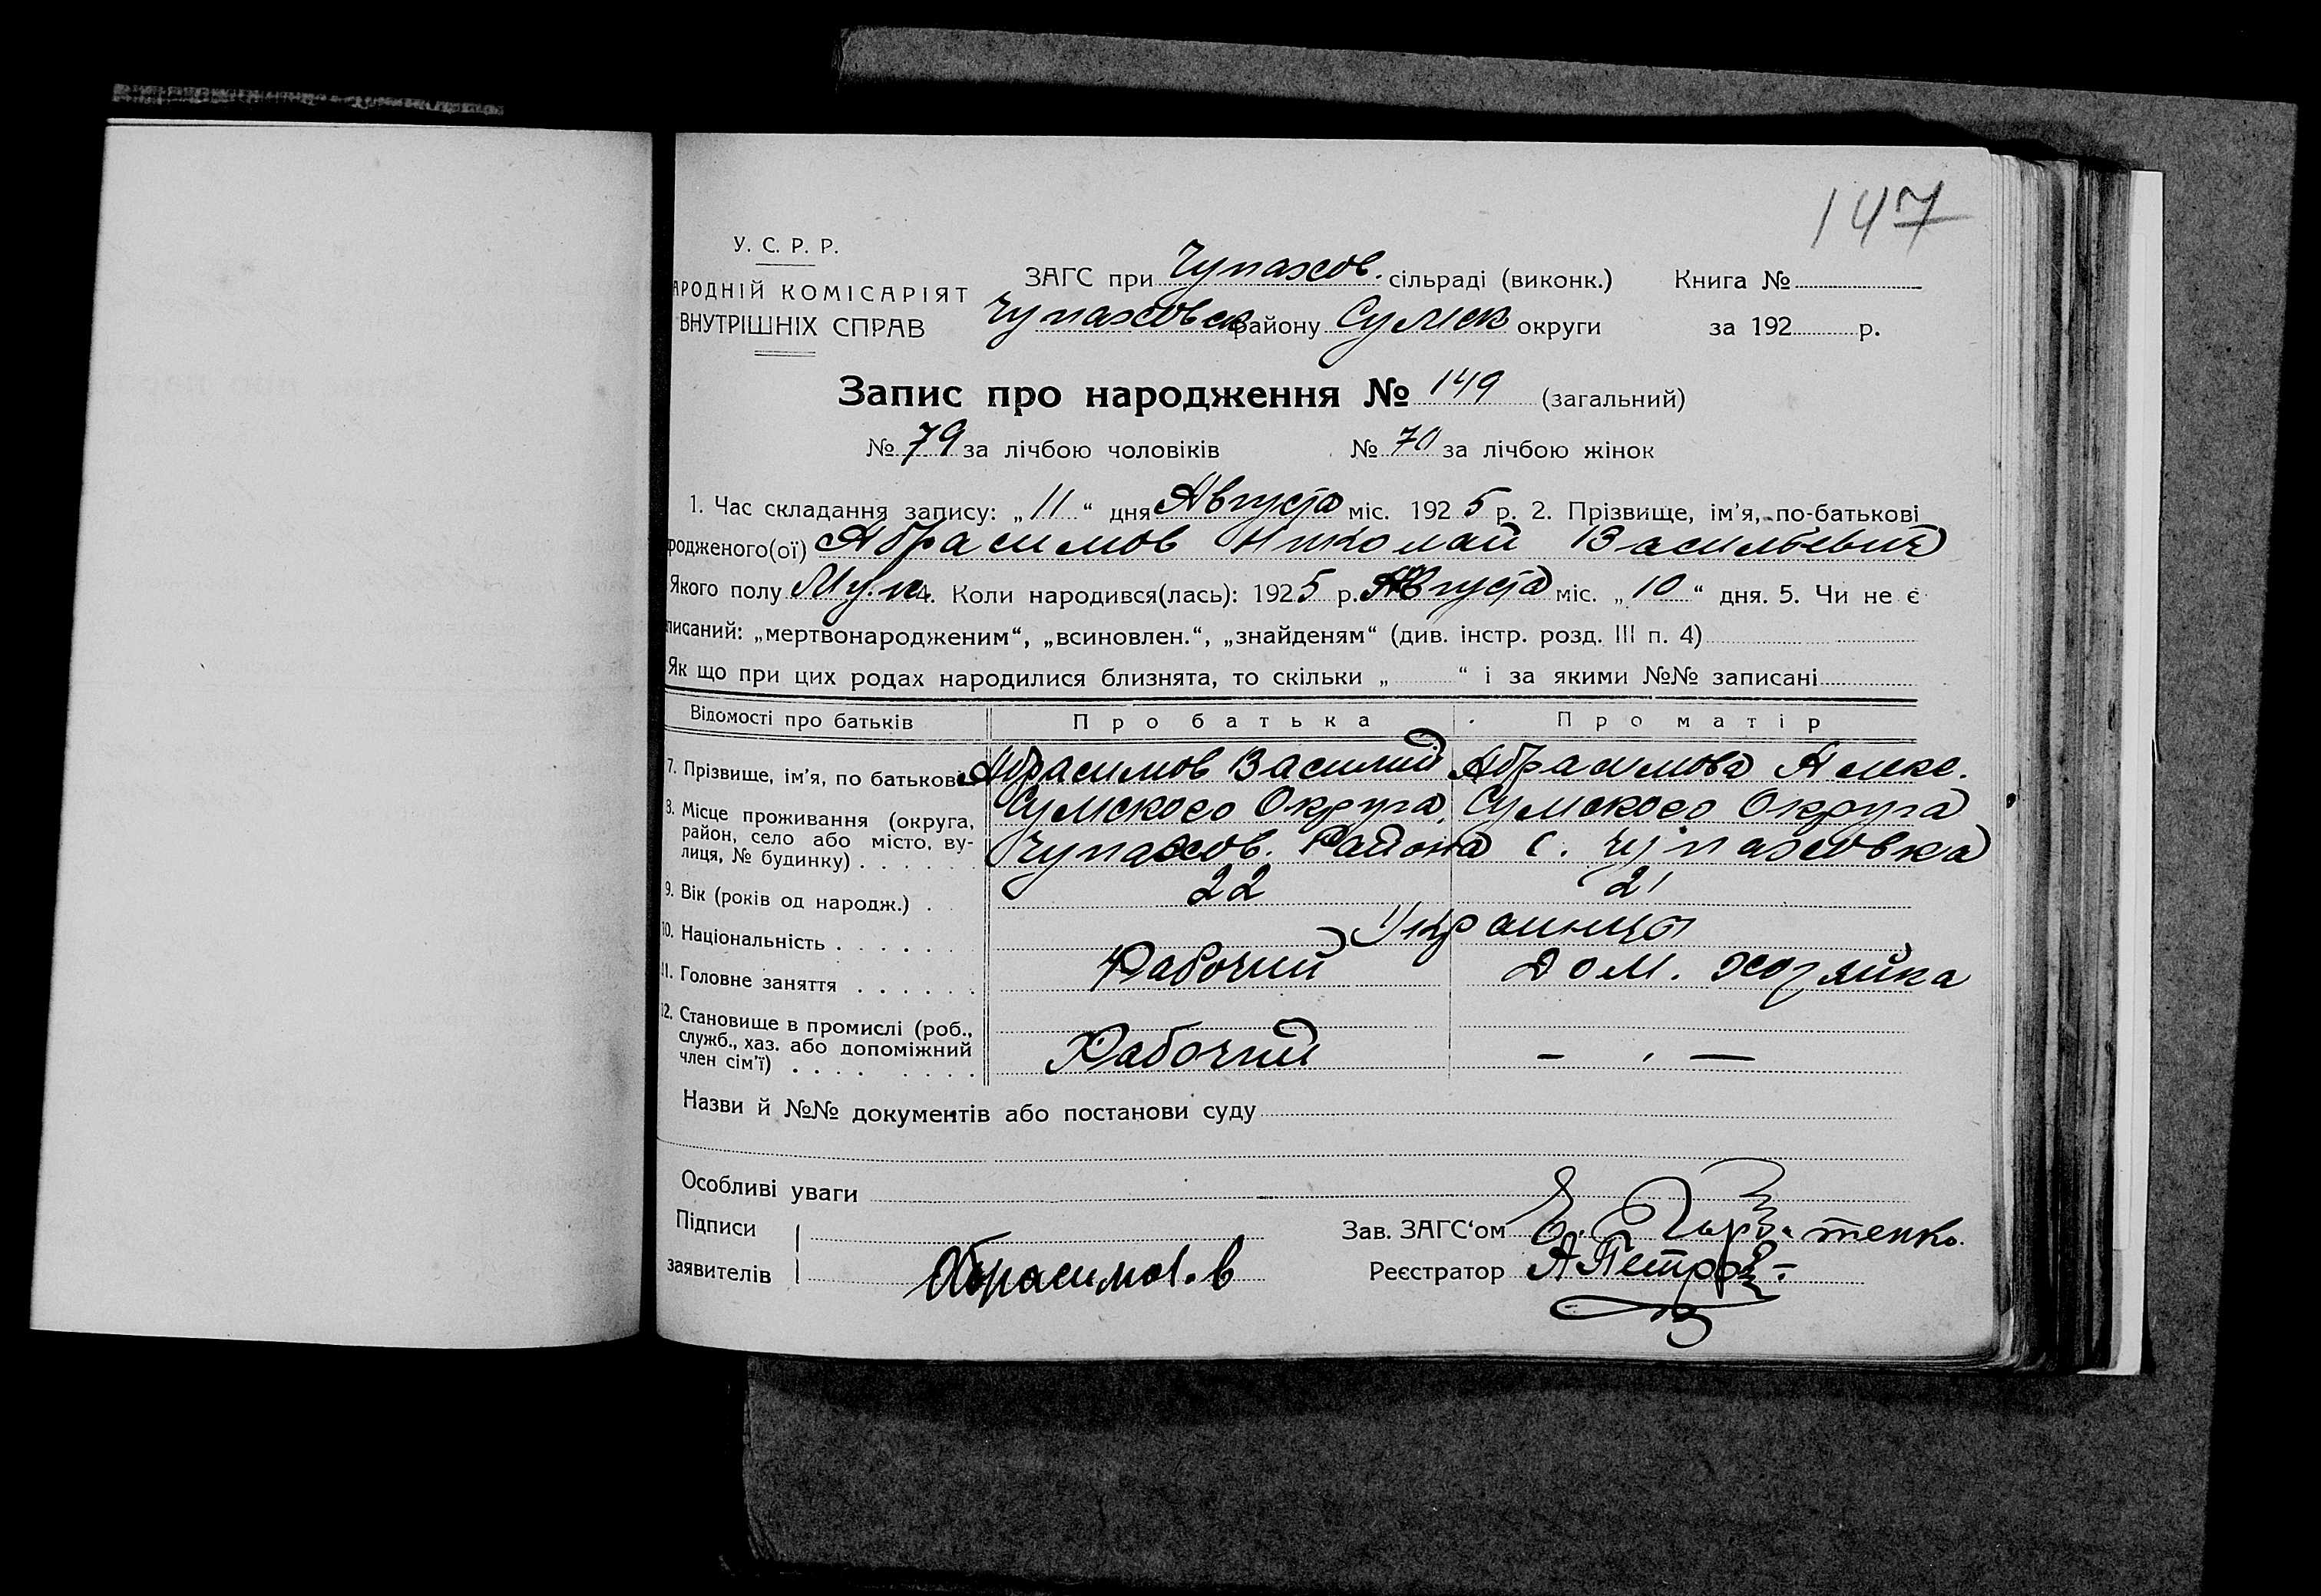 147
У. С. Р. Р.
АРОДНІЙ КОМІСАРІЯТ
ВНУТРІШНІХ СПРАВ
ЗАГС при Чупахов. сільраді (виконк.) Книга №
Чупаховск району Сумск округи за 192 р.
Запис про народження № 149 (загальний)
№ 79 за лічбою чоловіків № 70 за лічбою жінок
1. Час складання запису: „11“ дня Августа міс. 1925 р. 2. Прізвище, ім’я, по-батькові
родженого(ої) Абрасимов Николай Васильевич
Якого полу Муж. 4. Коли народився(лась): 1925 р. Августа міс. „10“ дня. 5. Чи не є
писаний: „мертвонародженим“, „всиновлен.“, „знайденям“ (див. інстр. розд. III п. 4)
Як що при цих родах народилися близнята, то скільки „ “ і за якими №№ записані
Відомості про батьків Про батька Про матір
7. Прізвище, ім’я, по батькові Абрасимов Василий Абрасимова Алекс.
8. Місце проживання (округа, район, село або місто, ву-
лиця, № будинку) . . . . . .
Сумского Округа, Сумского Округа
Чупахов. Района с. Чупаховка
9. Вік (років од народж.) . 22 21
10. Національність . . . . . . Украинцы
11. Головне заняття . . . . . . Рабочий Дом. хозяйка
12. Становище в промислі (роб.,
служб., хаз. або допоміжний
член сім’ї) . . . . . . . . Рабочий — . —
Назви й №№ документів або постанови суду
Особливі уваги
Підписи
заявителів Абрасимов
Зав. ЗАГС‘ом Е.
Реєстратор А Петров